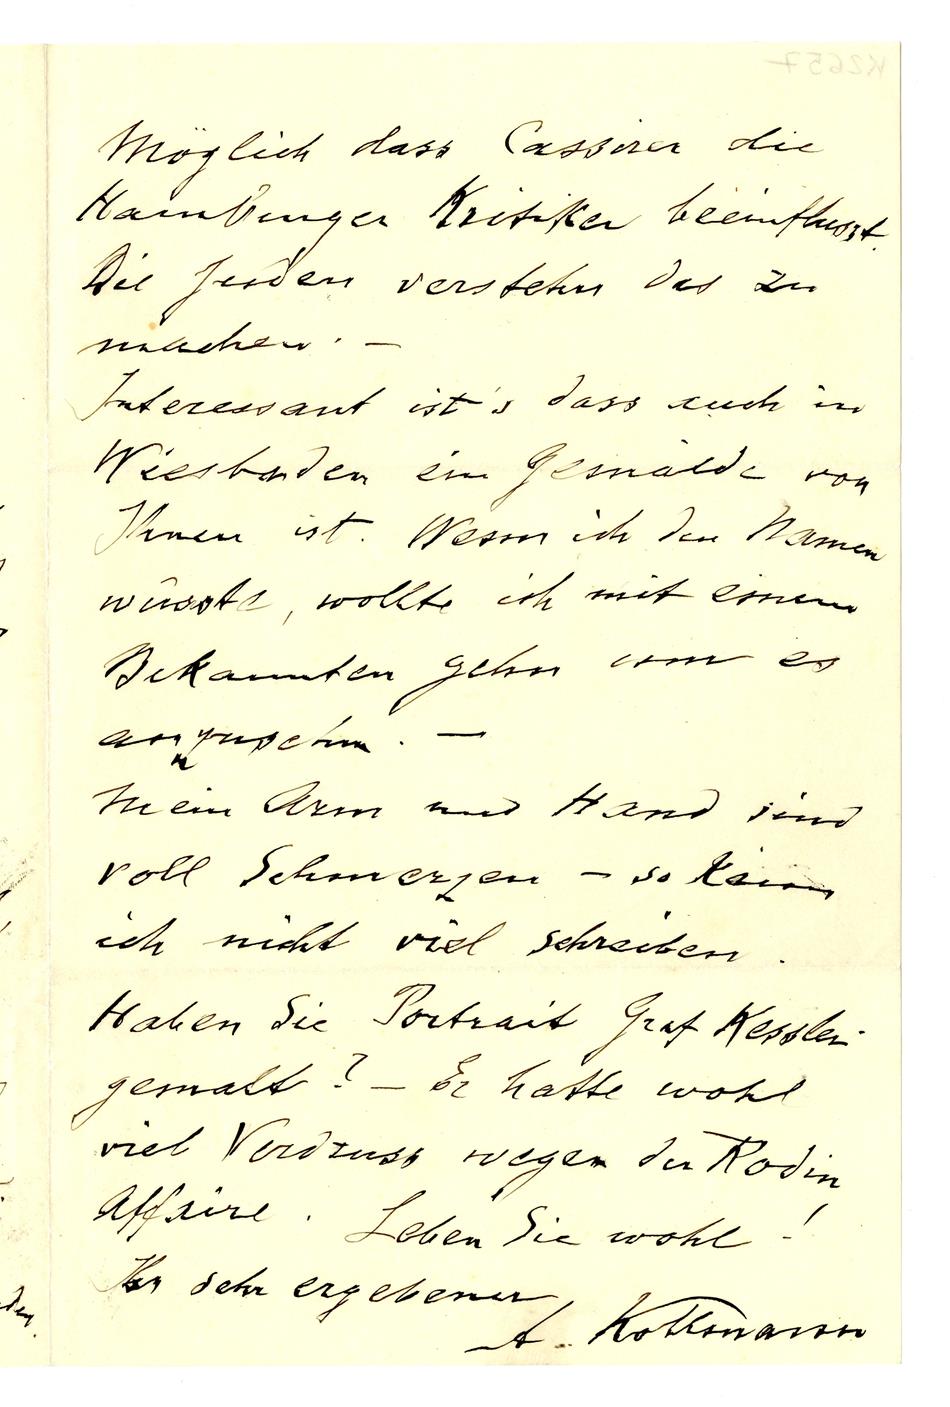 Möglich dass Cassirer die
Hamburger Kritiker beeinflusst.
Die Juden verstehn das zu
machen. —
Interessant ist's dass auch in
Wiesbaden ein Gemälde von
Ihnen ist. Wenn ich den Namen
wüsste, wollte ich mit einem
Bekannten gehn um es
anzusehn. —
Mein Arm und Hand sind
voll Schmerzen – so kann
ich nicht viel schreiben.
Haben Sie Portrait Graf Kessler
gemalt? — Er hatte wohl
viel Verdruss wegen der Rodin
Affaire. Leben Sie wohl!
Ihr sehr ergebener
A. Kollmann